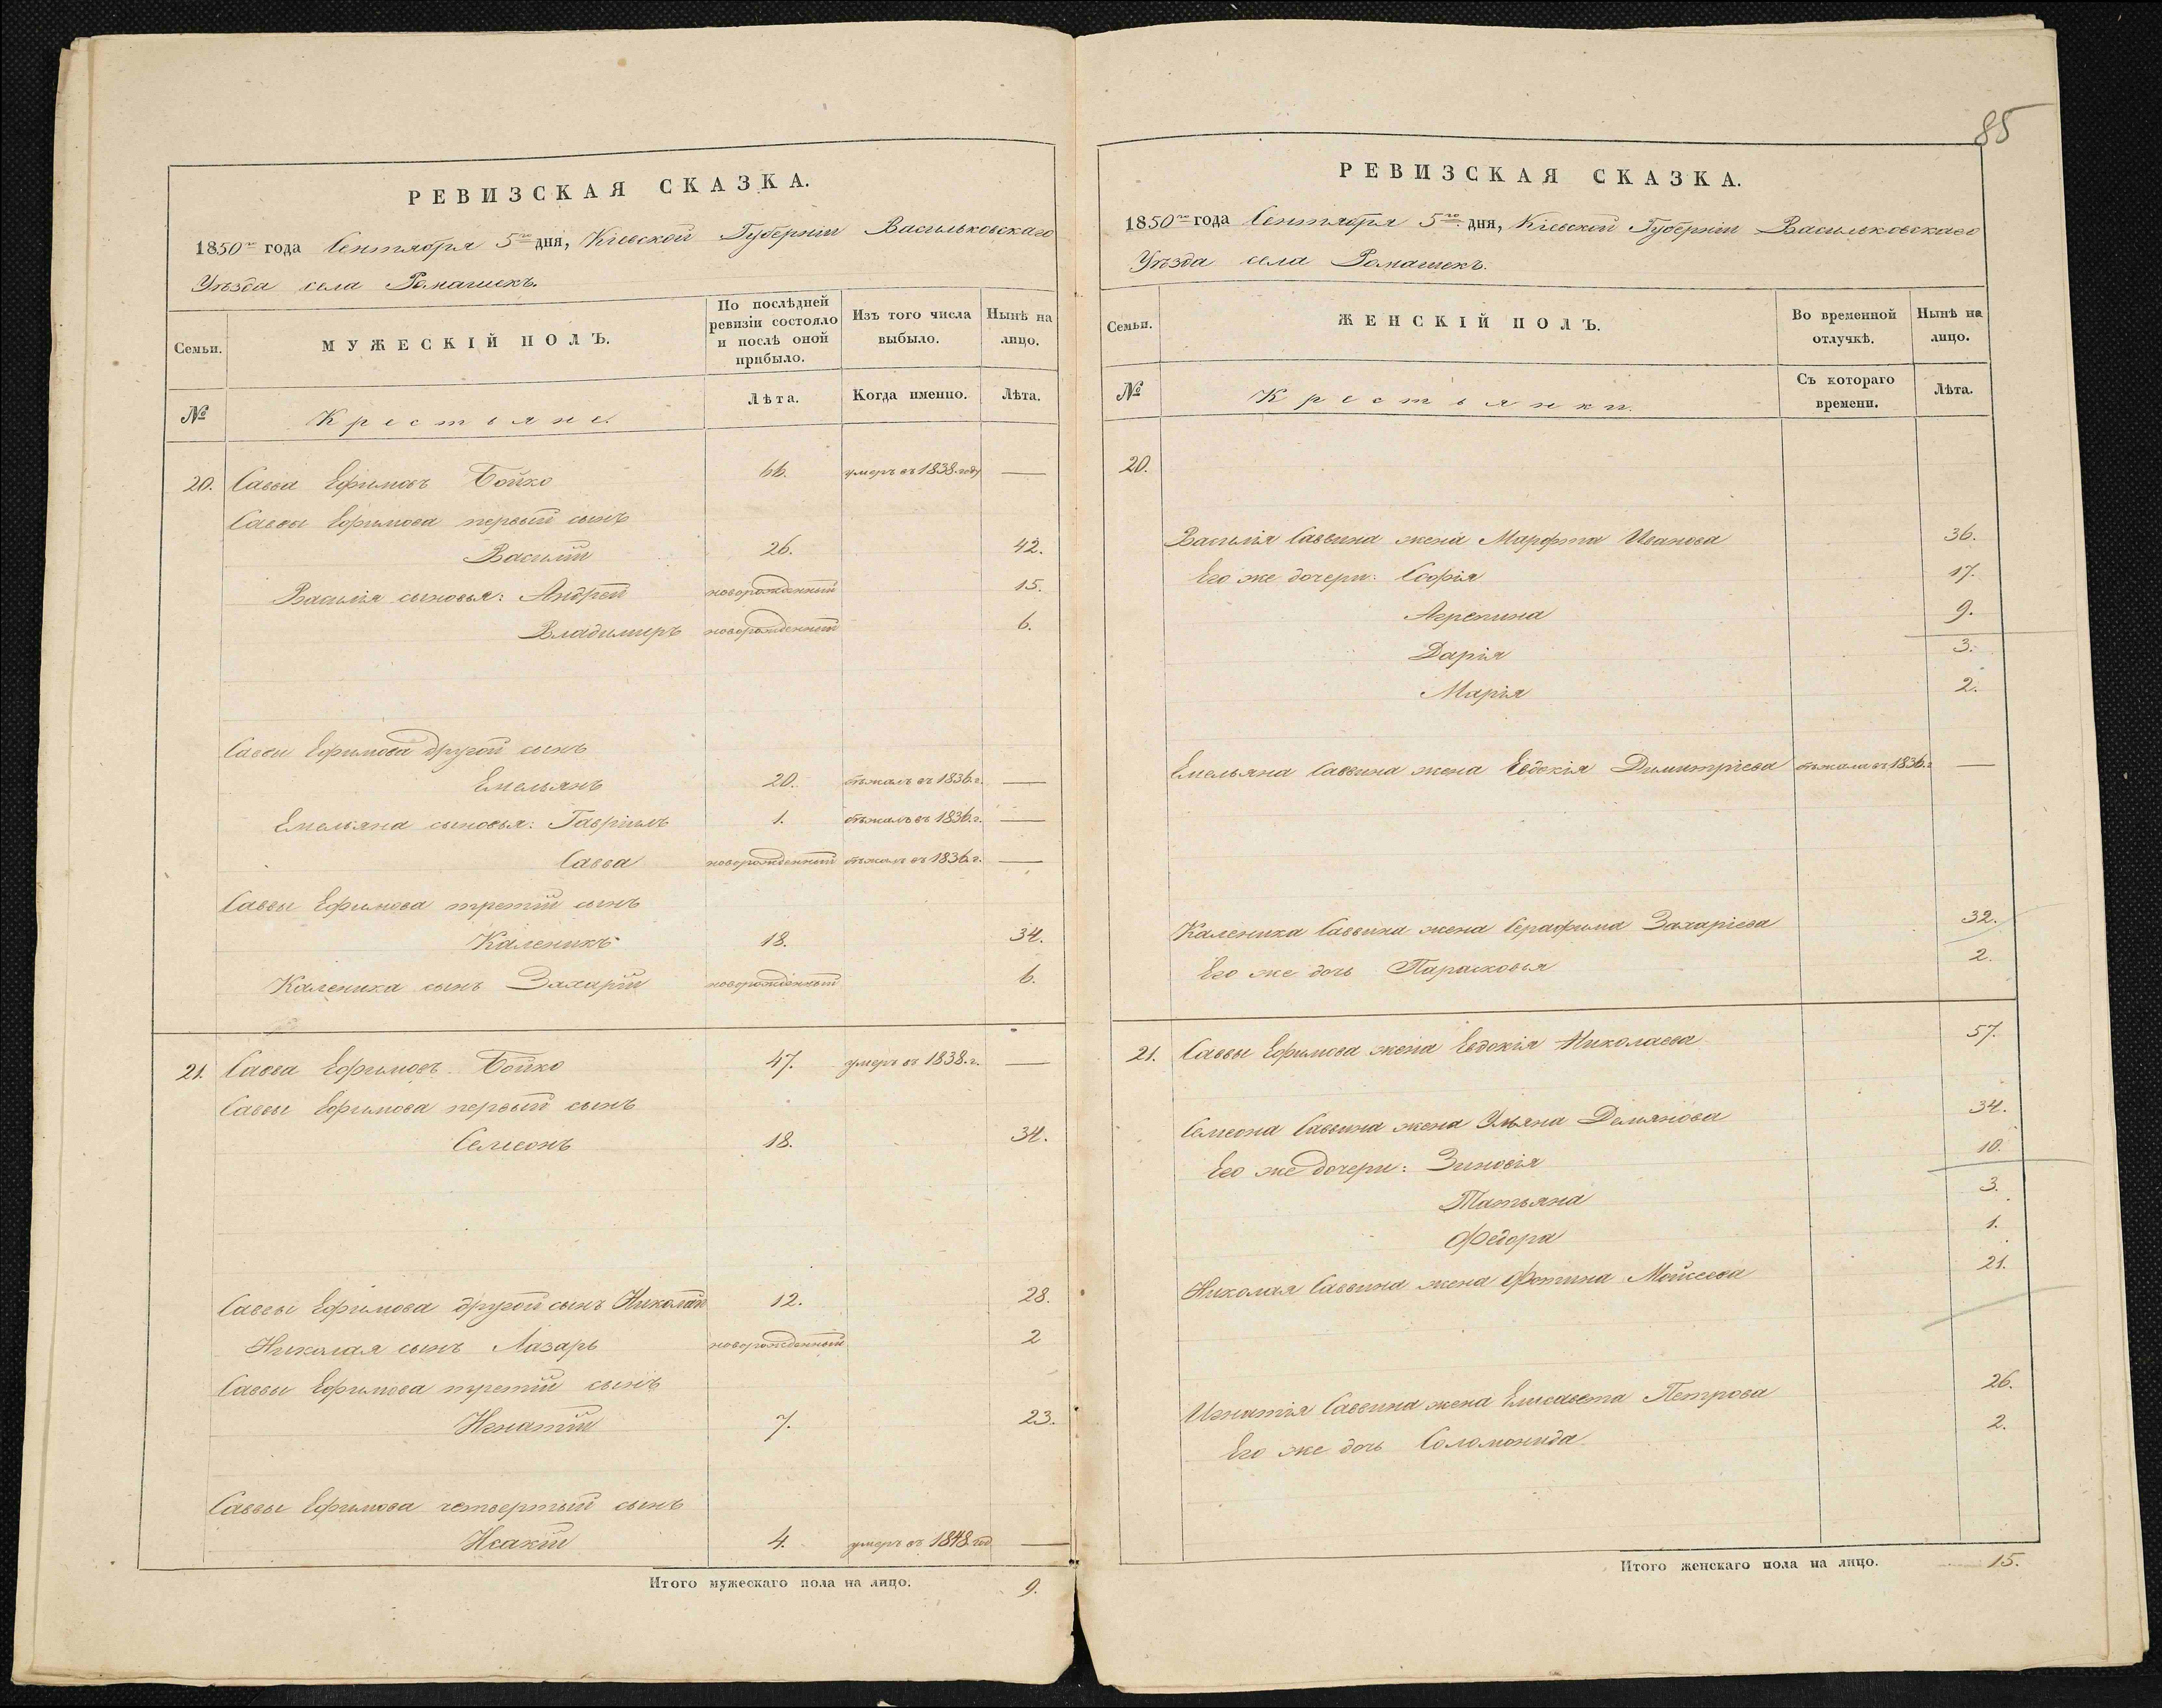 РЕВИЗСКАЯ СКАЗКА.
1850го года Сентября 5го дня, Кіевской Губерніи Васильковскаго
Уѣзда села Ромашекъ.
Семьи.
МУЖЕСКІЙ ПОЛЪ.
По послѣдней ревизіи состояло и послѣ оной прибыло.
Изъ того числа выбыло.
Нынѣ на лицо.
№
Крестьяне.
Лѣта.
Когда именно.
Лѣта.
20. Савва Ефимовъ Бойко 66. умеръ въ 1838. году —
Саввы Ефимова первый сынъ
Василій 26. 42.
Василія сыновья: Андрей новорожденный 15.
Владимиръ новорожденный 6.
Саввы Ефимова другой сынъ
Емельянъ 20. бѣжалъ въ 1836. г. —
Емельяна сыновья: Гавріилъ 1. бѣжалъ въ 1836. г. —
Савва новорожденный бѣжалъ въ 1836. г. —
Саввы Ефимова третій сынъ
Каленикъ 18. 34.
Каленика сынъ Захарій новорожденный 6.
21. Савва Ефимовъ Бойко 47. умеръ въ 1838. г. —
Саввы Ефимова первый сынъ
Семеонъ 18. 34.
Саввы Ефимова другой сынъ Николай 12. 28.
Николая сынъ Лазарь новорожденный 2
Саввы Ефимова третій сынъ
Игнатій 7. 23.
Саввы Ефимова четвертый сынъ
Исакій 4. умеръ въ 1848. год. —
Итого мужескаго пола на лицо. 9.
85
РЕВИЗСКАЯ СКАЗКА.
1850го года Сентября 5го дня, Кіевской Губерніи Васильковскаго
Уѣзда села Ромашекъ.
Семьи.
ЖЕНСКІЙ ПОЛЪ.
Во временной отлучкѣ.
Нынѣ на лицо.
№
Крестьянки.
Съ котораго времени.
Лѣта.
20.
Василія Саввина жена Марфта Иванова 36.
Его же дочери: Софія 17.
Агрепина 9.
Дарія 3.
Марія 2.
Емельяна Саввина жена Евдокія Димитріева бѣжала въ 1836. г. —
Каленика Саввина жена Серафима Захаріева 32.
Его же дочь Парасковья 2.
21. Саввы Ефимова жена Евдокія Николаева 57.
Семеона Саввина жена Ульяна Демянова 34.
Его же дочери: Зиновія 10.
Татьяна 3.
Федора 1.
Николая Саввина жена Фотина Мойсеева 21.
Игнатія Саввина жена Елисавета Петрова 26.
Его же дочь Соломонида 2.
Итого женскаго пола на лицо. 15.